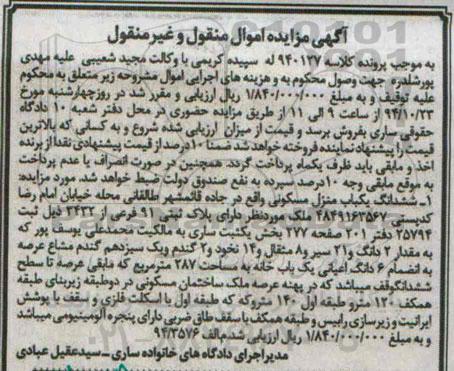 آگهی مزایده اموال منقول و غیر منقول
به موجب پرونده کلاسه ۹۴۰۱۲۷ له سپیده کریمی با وکالت مجید شعیبی علیه مهدی
پورشلدره جهت وصول محکوم به و هزینه های اجرایی اموال مشروحه زیر متعلق به محکوم
علیه توقیف و به مبلغ ۱/۸۴۰/۰۰۰/۰۰۰ ریال ارزیابی و مقرر شد در روز چهارشنبه مورخ
۹۴/۱۰/۲۳ از ساعت ۹ الی ۱۱ از طریق مزایده حضوری در محل دفتر شعبه ۱۰ دادگاه
حقوقی ساری بفروش برسد و قیمت از میزان ارزیابی شده شروع و به کسانی که بالاترین
قیمت را پیشنهاد نماینده فروخته خواهد شد ضمنا ۱۰درصد از قیمت پیشنهادی نقدا از برنده
اخذ و مابقی باید ظرف یکماه پرداخت گردد. همچنین در صورت انصراف یا عدم پرداخت
به موقع مابقی وجه ۱۰درصد سپرده به نفع صندوق دولت ضبط خواهد شد. مورد مزایده:
۱_ ششدانگ یکباب منزل مسکونی واقع در جاده قائمشهر طالقانی محله خیابان امام رضا
کدپستی ۴۸۴۹۱۶۳۵۶۷ ملک موردنظر دارای پلاک ثبتی ۹۱ فرعی از ۲۴۳۲ ذیل ثبت
۲۵۷۹۴ دفتر ۲۰۱ صفحه ۲۷۷ بخش یکثبت ساری به مالکیت محمدعلی یوسف پور که
به مقدار ۲ دانگ و۲۱ سیر و۸ مثقال و۱۴ نخود و۲ گندم ویک سیزدهم گندم مشاع عرصه
به انضمام ۶ دانگ اعیانی یک باب خانه به مساحت ۲۸۷ مترمربع که مابقی عرصه تا سطح
ششدانگ‌وقف میباشد که در پهنه عرصه ملک ساختمان مسکونی در دوطبقه زیربنای طبقه
همکف ۱۲۰ مترو طبقه اول ۱۴۰ متروکه که طبقه اول با اسکلت فلزی و سقف با پوشش
ایرانیت و زیرسازی رابیس و طبقه همکف با سقف طاق ضربی دارای پنجره آلومینیومی میباشد
و به مبلغ ۱/۸۴۰/۰۰۰/۰۰۰ ریال ارزیابی شدم.الف ۹۴/۳۵۷۶
مدیر اجرای دادگاه های خانواده ساری _ سید عقیل عبادی